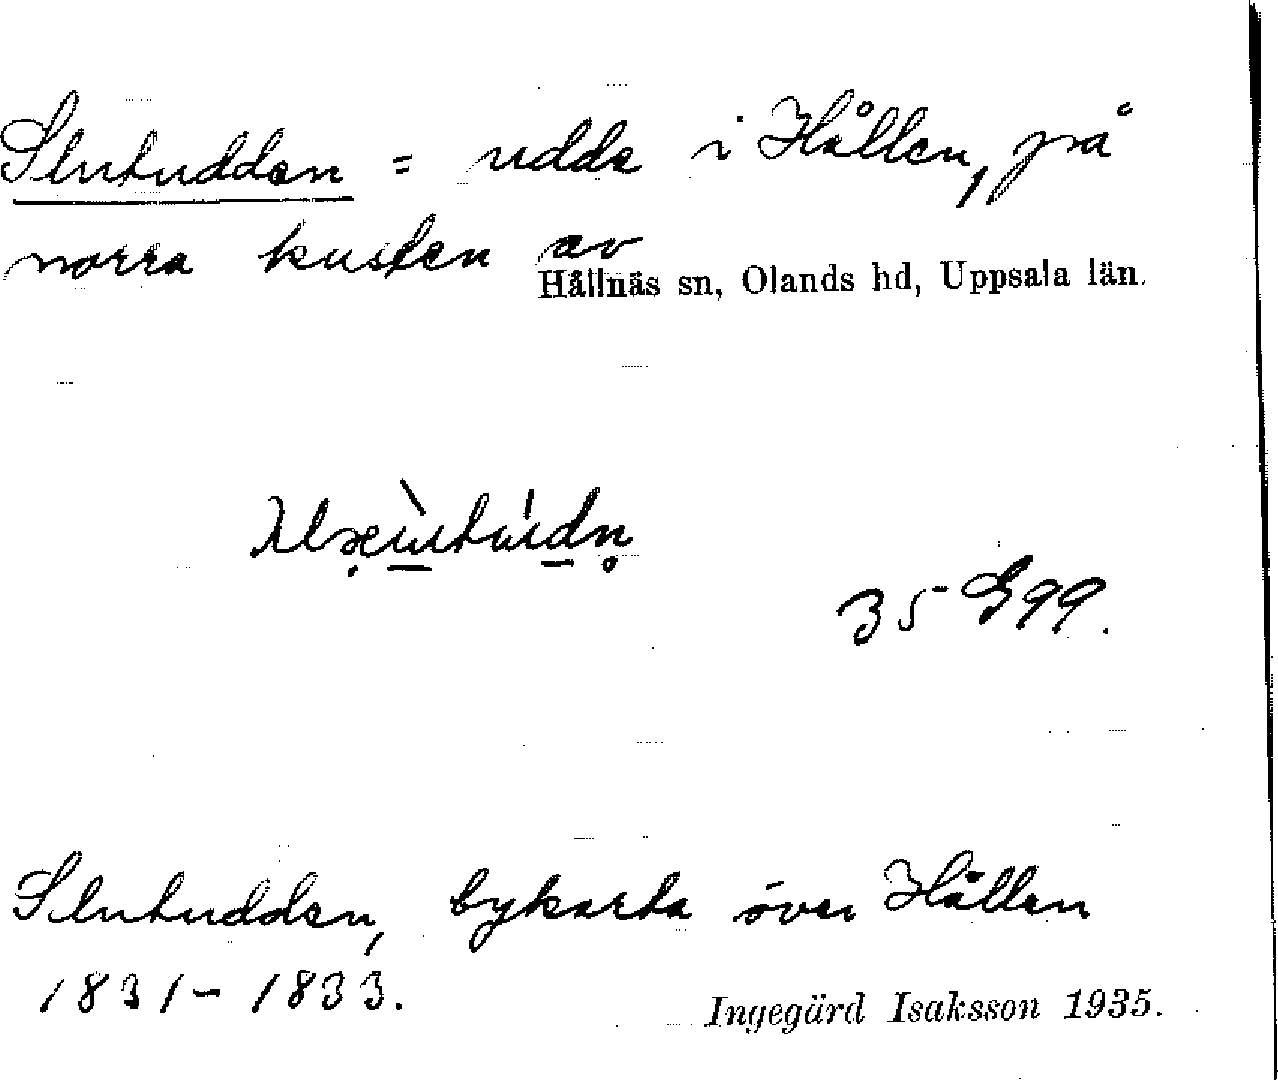 Slutudden = udde i Hållen, på
norra kusten av
Hållnäs sn, Olands hd, Uppsala län.
35 E 99.
Slutudden, bykarta över Hållen
1831-1833.
Ingegärd Isaksson 1935.